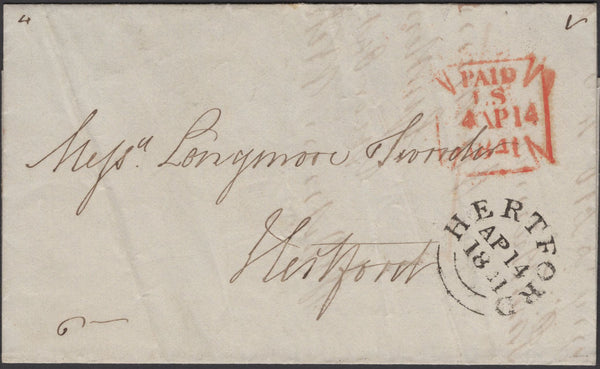 PAID
LS
4 AP 14
1841
Messrs Longmore Sworder
Hertford
HERTFORD
AP 14
1841
6